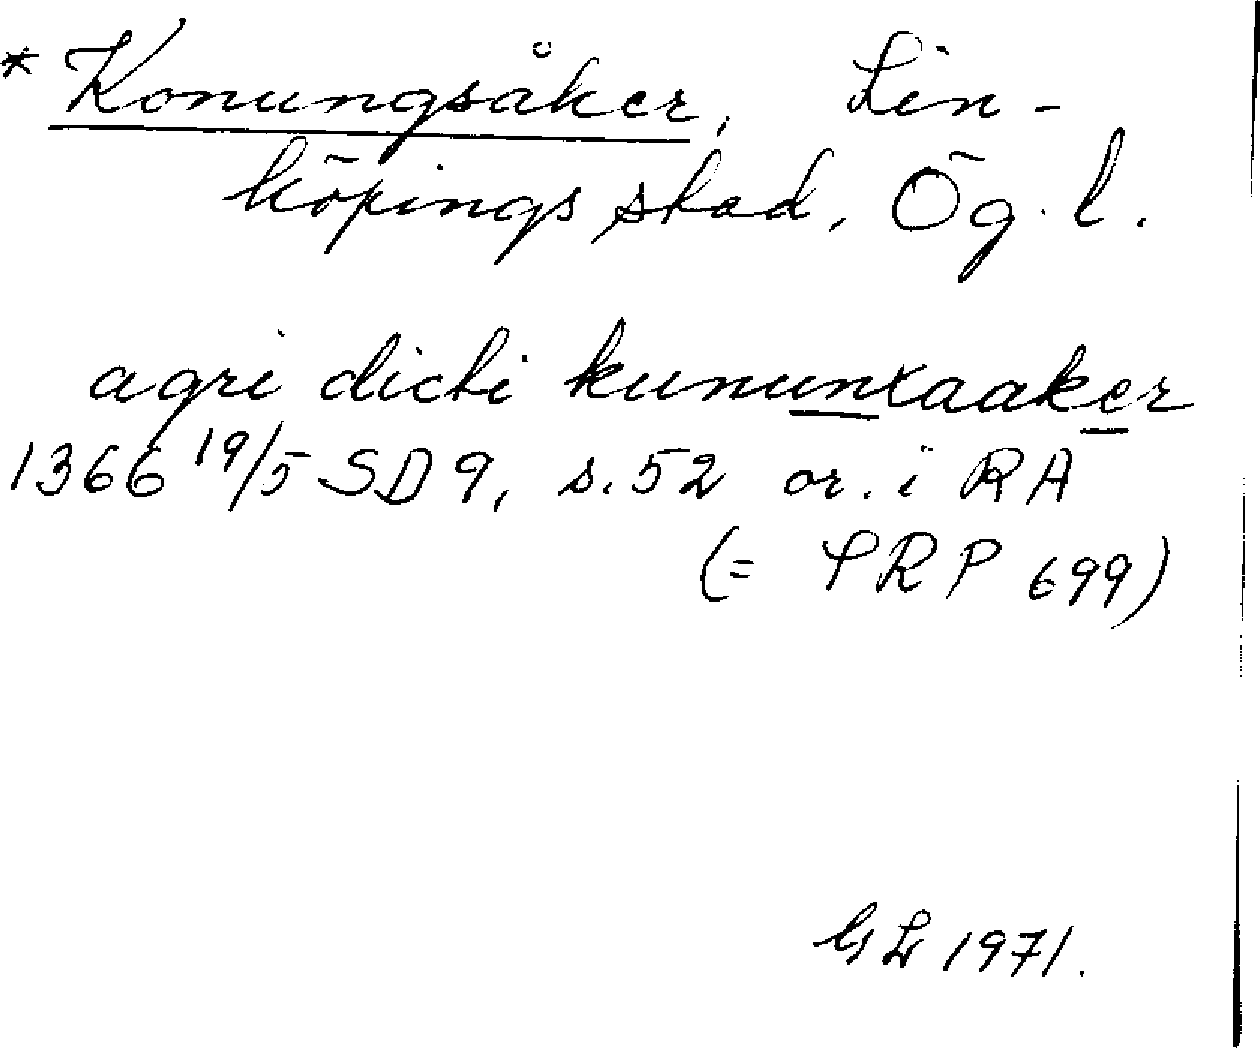 * Konungsåker, Lin-
köpings stad, Ög. l.
agri dicti kununxaaker
1366 19/5 SD 9, s. 52 or. i RA
(= SRP 699)
GL 1971.